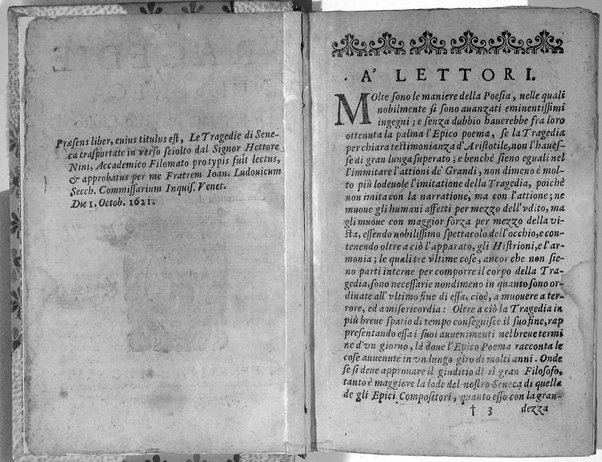 Præsens liber, cuius titulus est, Le Tragedie di Sene-
ca trasportate in verso sciolto dal Signor Hettore
Nini, Accademico Filomato pro typis fuit lectus,
& approbatus per me Fratrem Ioan. Ludouicum
Secch. Commissarium Inquis. Venet.
Die 1. Octob. 1621.
A' LETTORI.
MOlte sono le maniere della Poesia, nelle quali
nobilmente si sono auanzati eminentissimi
ingegni; e senza dubbio hauerebbe fra loro
ottenuta la palma l'Epico poema, se la Tragedia
per chiara testimonianza d'Aristotile, non l'haues-
se di gran lunga superato; e benchè sieno eguali nel
l'immitare l'attioni de' Grandi, non dimeno è mol-
to più lodeuole l'imitatione della Tragedia, poichè
non imita con la narratione, ma con l'attione; ne
muoue gli humani affetti per mezzo dell'vdito, ma
gli muoue con maggior forza per mezzo della vi-
sta, essendo nobilissimo spettacolo dell'occhio, e con-
tenendo oltre a ciò l'apparato, gli Histrioni, e l'ar-
monia; le quali tre vltime cose, ancor che non sie-
no parti interne per comporre il corpo della Tra-
gedia, sono necessarie nondimeno in quanto sono or-
dinate all'vltimo fine di essa, cioè, a muouere a ter-
rore, ed a misericordia: Oltre a ciò la Tragedia in
più breue spatio di tempo conseguisce il suo fine, rap
presentando essa i suoi auuenimenti nel breue termi
ne d'vn giorno, là doue l'Epico Poema racconta le
cose auuenute in vn lungo giro di molti anni. Onde
se si deue approuare il giuditio di sì gran Filosofo,
tanto è maggiore la lode del nostro Seneca di quella
de gli Epici Compositori, quanto esso con la gran-
† 3 dezza